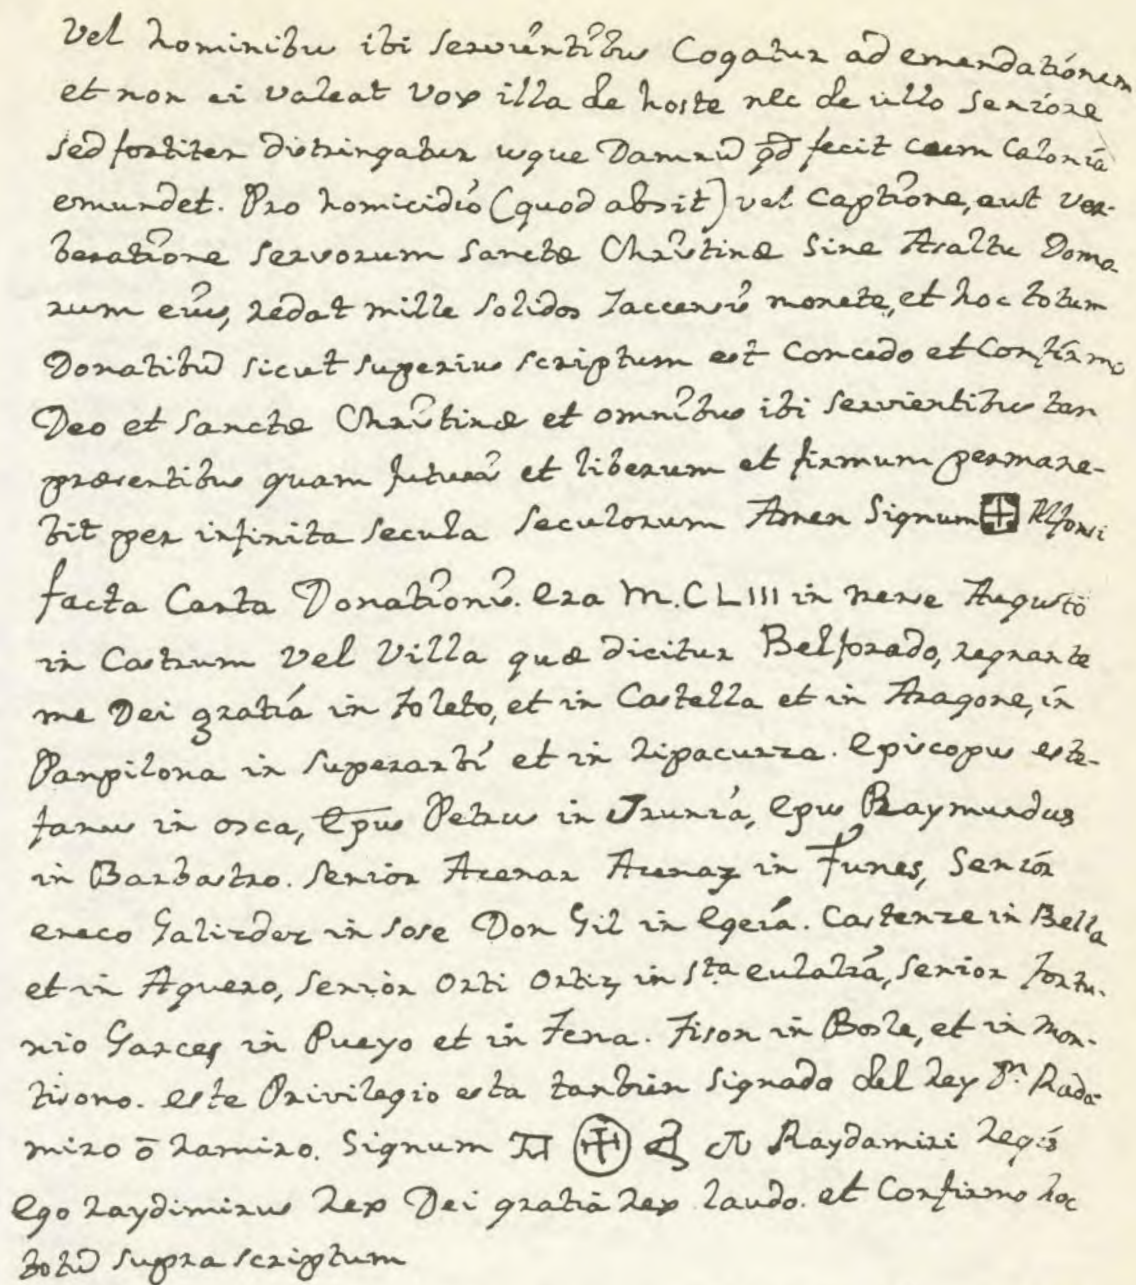 Vel hominibus ibi servientibus Cogatur ad emendationem
et non ei valeat vox illa de hoste nec de ullo seniore
sed fortiter distringatur usque Damnũ qđ fecit cum Calonia
emundet. Pro homicidio (quod absit) vel captione, aut ver-
beratione servorum sanctæ Christinæ sine Asaltu Domo
rum eius, redat mille solidos Iaccensis monete, et hoc totum
Donatibũ sicut superius scriptum est concedo et confirmo
Deo et sanctæ Christinæ et omnibus ibi servientibus tan
præsentibus quam futuris et liberum et firmum permane-
bit per infinita secula seculorum Amen Signum Alfonsi
facta Carta Donationis. Era M.CLIII in mense Augusto
in Castrum vel Villa quæ dicitur Belforado, regnante
me Dei gratiá in Toleto, et in Castella et in Aragone, in
Panpilona in superarbi et in Ripacurza. Episcopus este-
fanus in osca, Epus Petrus in Irunia, Epus Raymundus
in Barbastro. Senior Acenar Acenaz in Funes, Senior
eneco Galindez in sose Don Gil in Egeiá. Castenze in Bella
et in Aguero, senior Orti Ortiz, in Sta eulaliá, senior fortu-
nio Garces, in Pueyo et in Tena. Tison in Boile, et in Mon-
tisono. este Privilegio esta tanbien signado del Rey Dn. Rada
miro ō Ramiro. Signum Raydamiri Regis
Ego Raydimirus Rex Dei gratiá Rex laudo. et Confirmo hoc
totũ supra scriptum